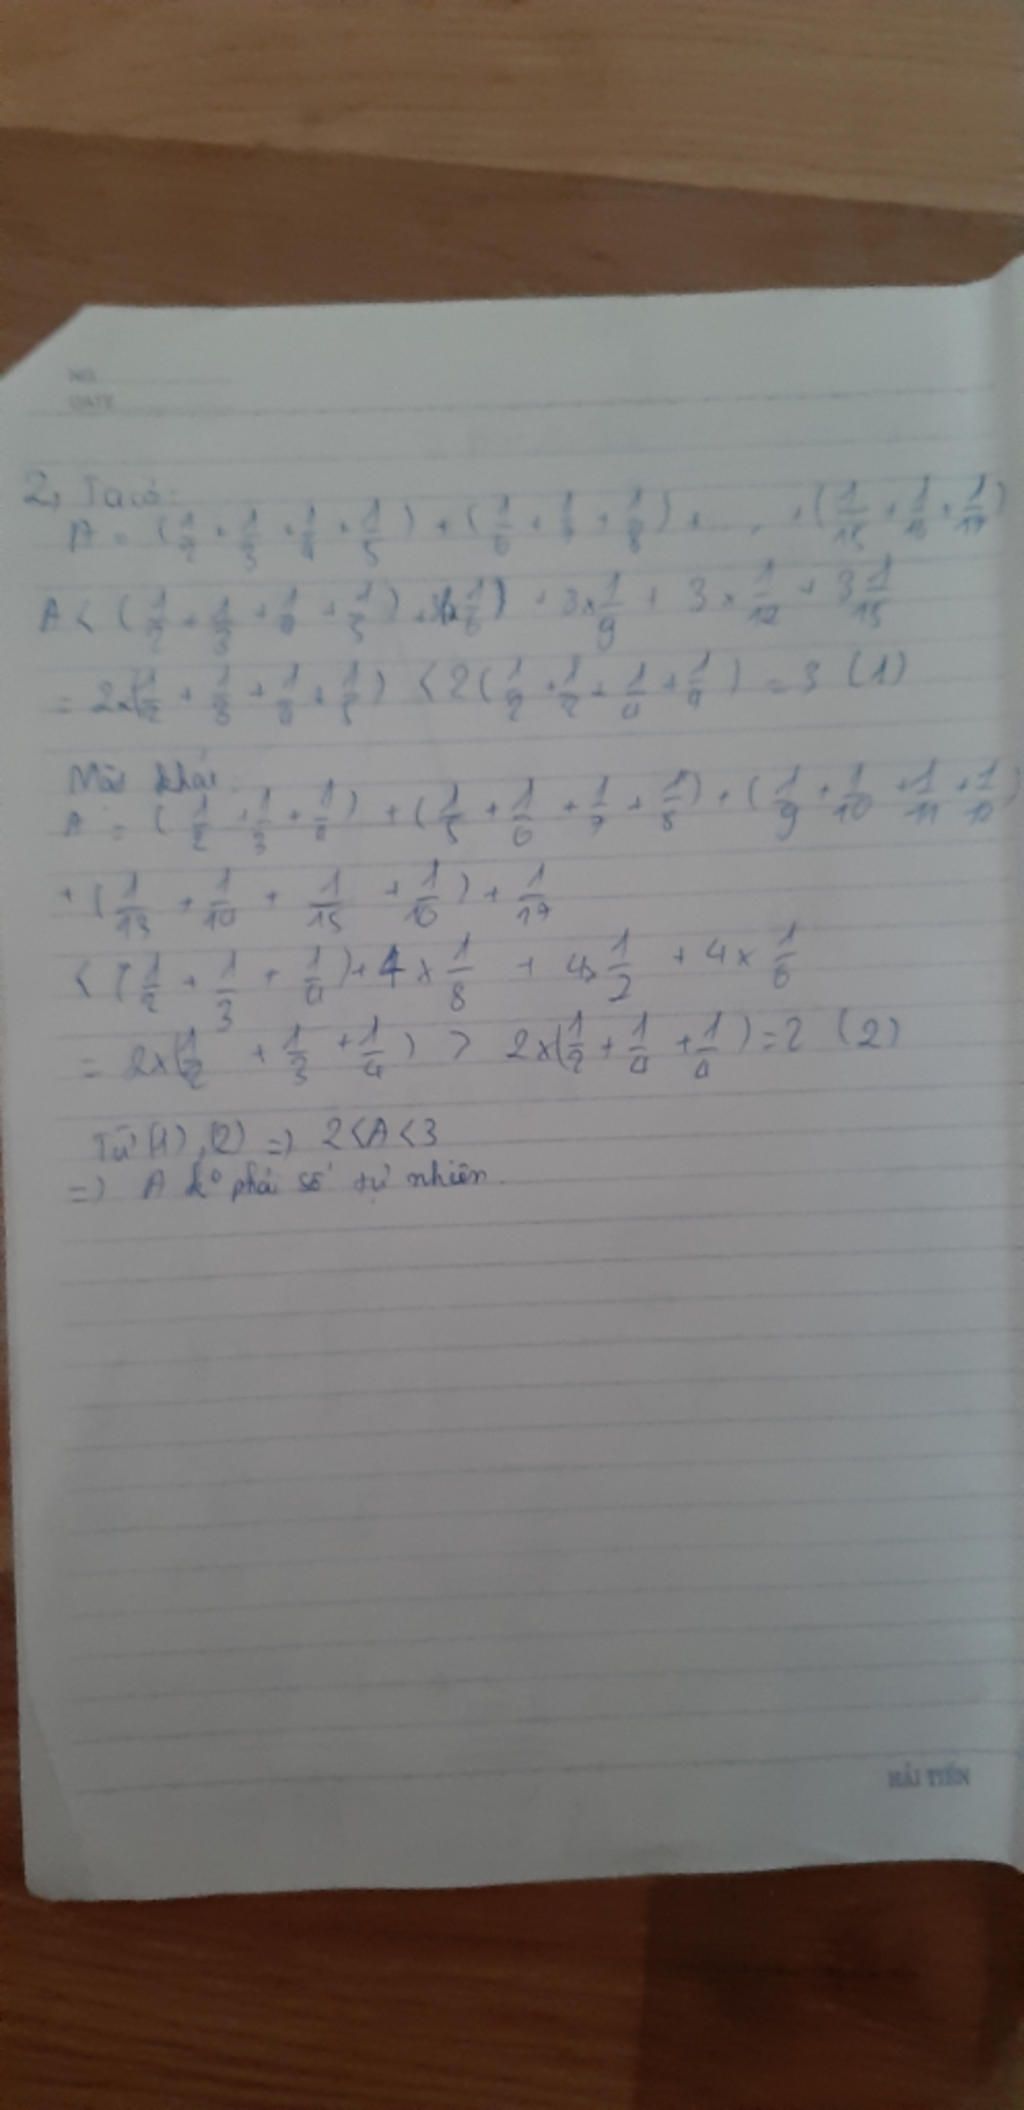 NO.
DATE
2, Ta có:
A = (1/2 + 1/3 + 1/4 + 1/5) + (1/6 + 1/7 + 1/8) + ... + (1/15 + 1/16 + 1/17)
A < (1/2 + 1/3 + 1/4 + 1/5) + 3x1/6) + 3x1/9 + 3x1/12 + 3 1/15
= 2x(1/2 + 1/3 + 1/4 + 1/5) < 2(1/2 + 1/2 + 1/4 + 1/4) = 3 (1)
Mặt khác
A = (1/2 + 1/3 + 1/4) + (1/5 + 1/6 + 1/7 + 1/8) + (1/9 + 1/10 + 1/11 + 1/12)
+ (1/13 + 1/14 + 1/15 + 1/16) + 1/17
< (1/2 + 1/3 + 1/4) + 4 x 1/8 + 4x 1/2 + 4 x 1/6
= 2x(1/2 + 1/3 + 1/4) > 2x(1/2 + 1/4 + 1/4) = 2 (2)
Từ (1), (2) => 2 < A < 3
=> A k° phải số tự nhiên.
HẢI TIẾN